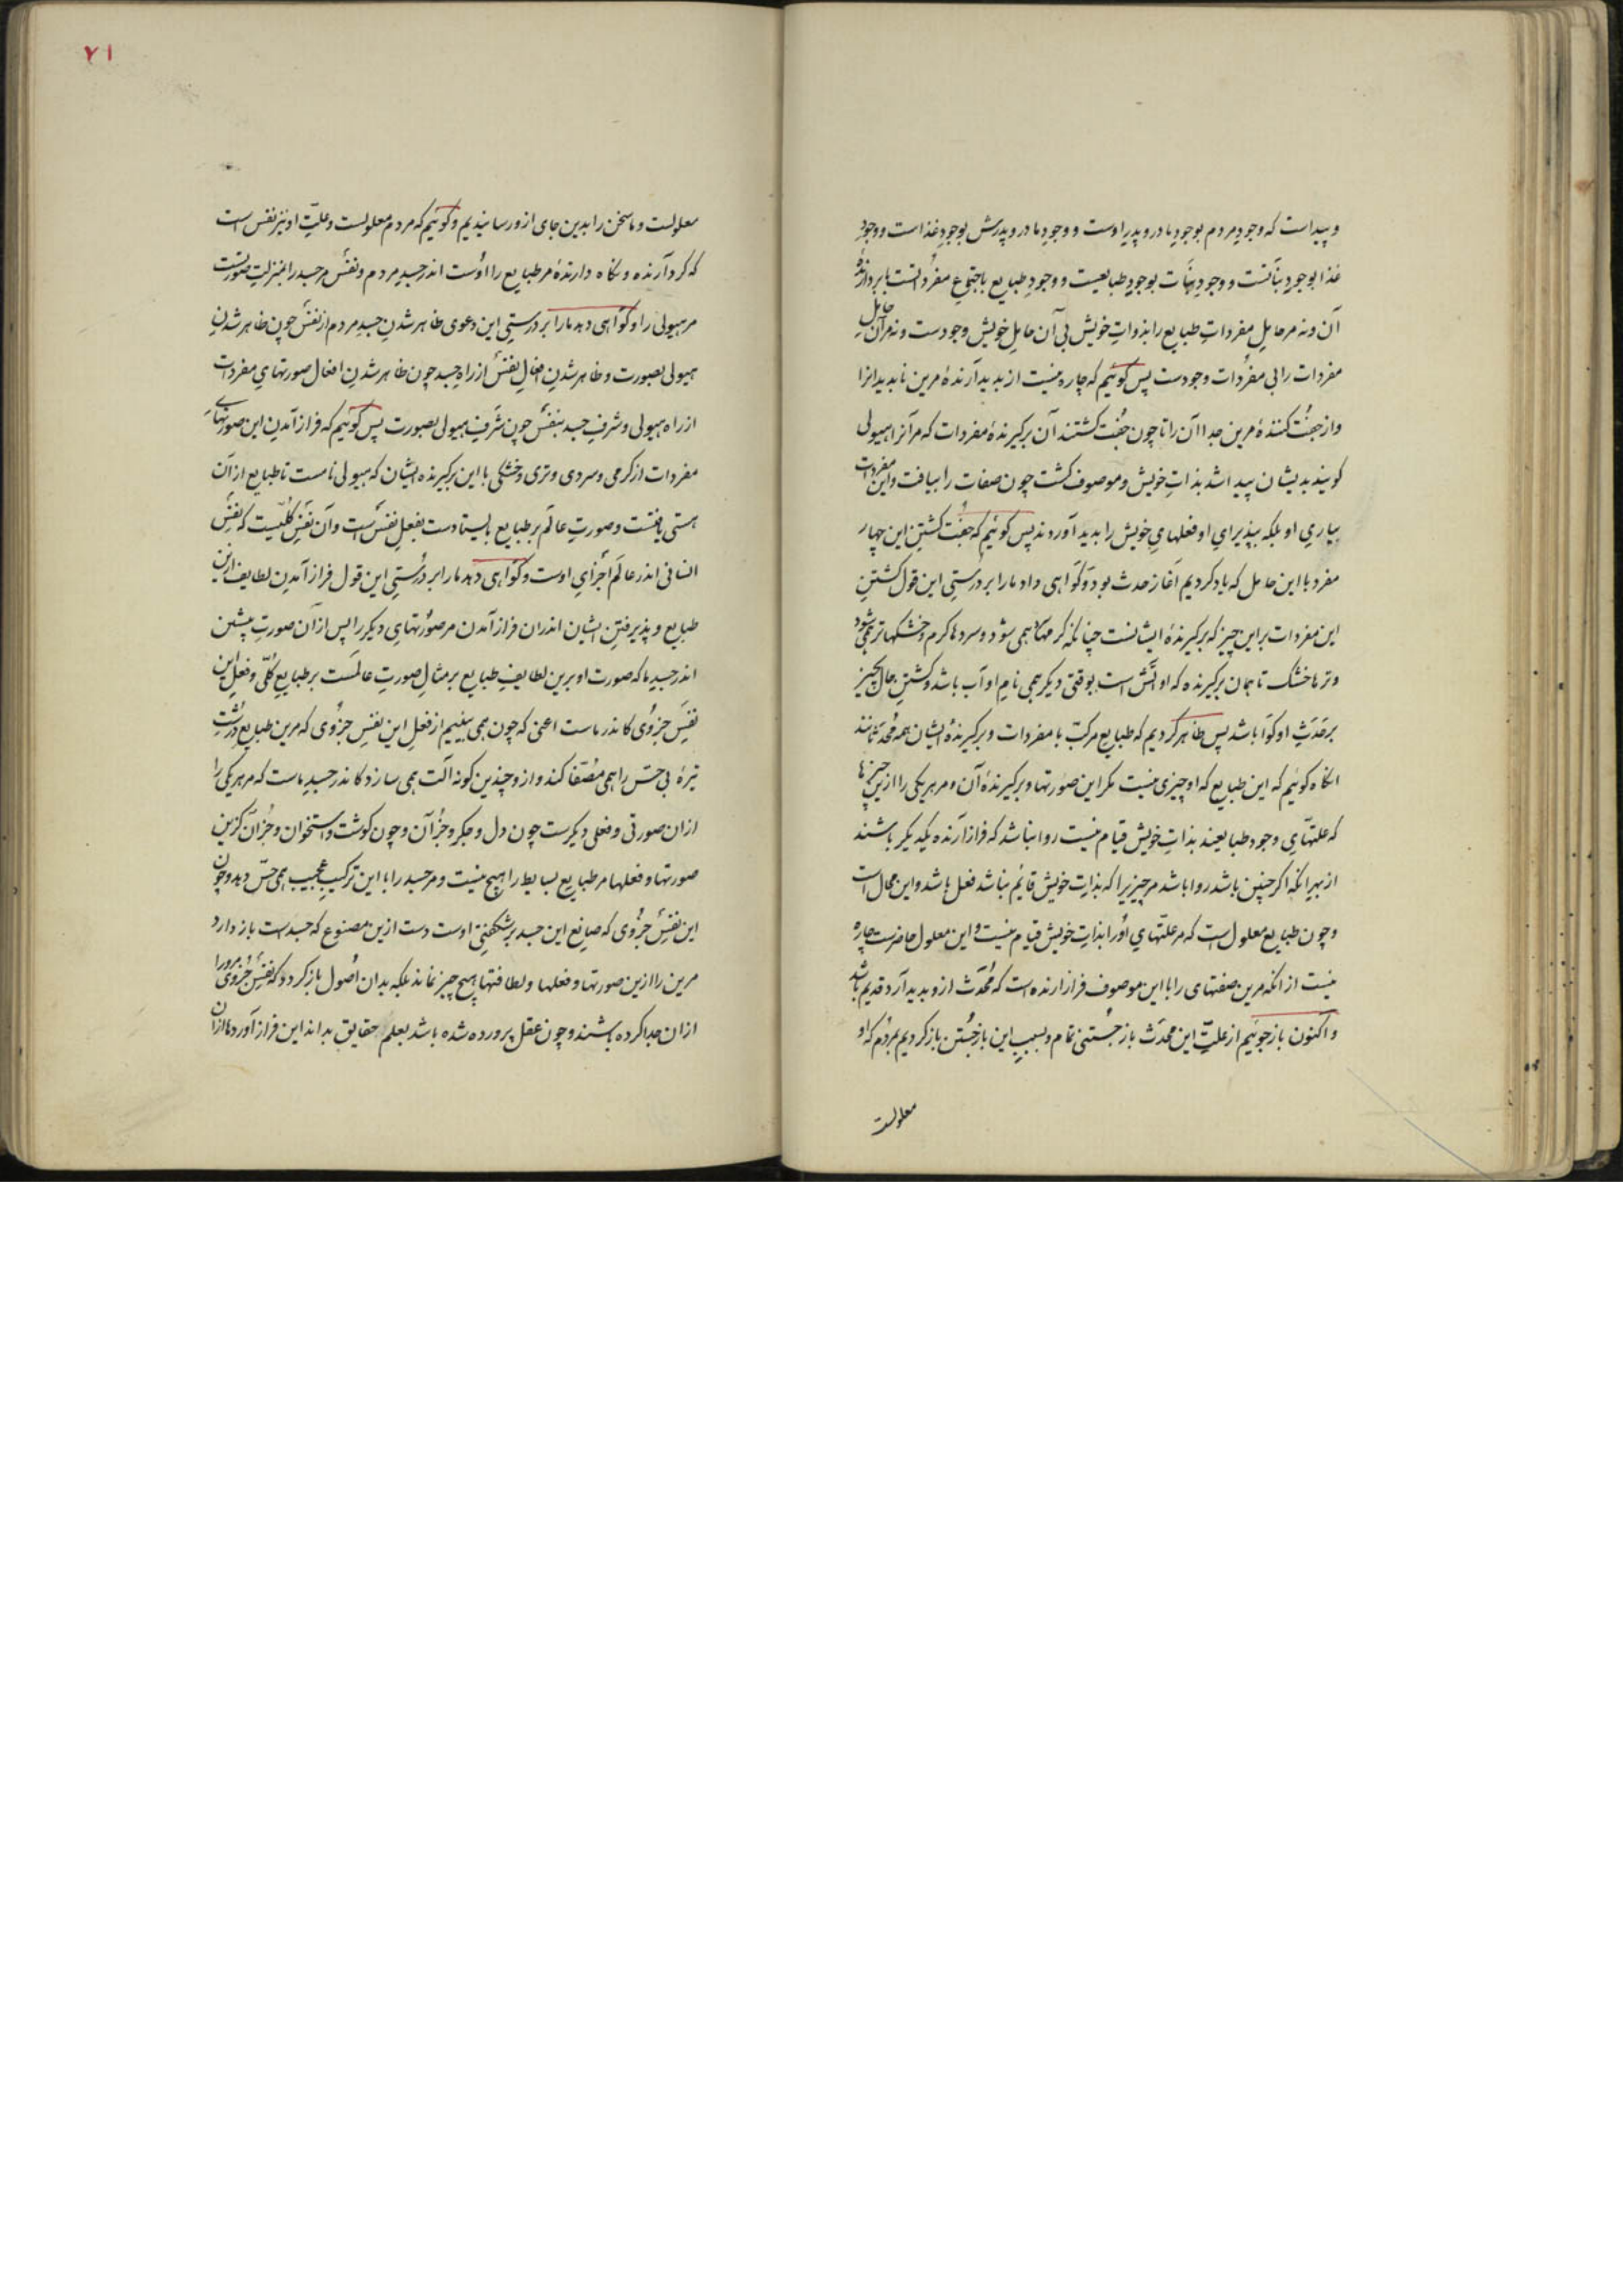 و پیداست که وجودِ مردم بوجودِ مادر و پدرِ اوست و وجودِ مادر و پدرش بوجودِ غذاست و وجودِ
غذا بوجودِ نباتست و وجودِ نبات بوجودِ طبایعست و وجودِ طبایع باجتماعِ مفرداتست با بردارندهٔ
آن و نه مر حاملِ مفرداتِ طبایع را بذواتِ خویش بی آن حاملِ خویش وجودست و نه مر آن حاملِ
مفردات را بی مفردات وجودست پس گوئیم که چاره نیست از پدید آرندهٔ مرین ناپدیدانرا
و از جفت کنندهٔ مرین جداآن را تا چون جفت گشتند آن برگیرندهٔ مفردات که مر آنرا هیولی
گویند بدیشان پیدا شد بذاتِ خویش و موصوف گشت چون صفات را بیافت و این مفردات
بیاریِ او بلکه بپذیرایِ او فعلهایِ خویش را پدید آوردند پس گوئیم که جفت گشتنِ این چهار
مفرد با این حامل که یاد کردیم آغازِ حدث بود و گواهی داد ما را بر درستیِ این قول گشتنِ
این مفردات بر این چیز که برگیرندهٔ ایشانست چنانکه گرمها سرد همی شود و سردها گرم و خشکها تر همی شود
و ترها خشک تا همان برگیرنده که او آتش است بوقتی دیگر همی نامِ او آب باشد و گشتنِ حالِ چیز
بر حَدَثِ او گوا باشد پس ظاهر کردیم که طبایع مرکب با مفردات و برگیرندهٔ ایشان همه مُحدَثانند
آنگاه گوئیم که این طبایع که او چیزی نیست مگر این صورتها و برگیرندهٔ آن و مر هر یکی را ازین چیزها
که علتهایِ وجودِ طبایعند بذاتِ خویش قیام نیست روا نباشد که فراز آرنده یکدیگر باشند
از بهرِ آنکه اگر چنین باشد روا باشد مر چیزیرا که بذاتِ خویش قائم نباشد فعل باشد و این محال است
و چون طبایع معلول است که مر علتهایِ او را بذاتِ خویش قیام نیست و این معلول حاضرست چاره
نیست از آنکه مرین صفتهای را با این موصوف فراز آرنده است که مُحدَث ازو پدید آرد قدیم باشد
و اکنون باز جوئیم از علتِ این محدَث باز جُستنی تمام و بسببِ این باز جُستن باز گردیم بمردُم که او
معلولست
معلولست و ما سخن را بدین جای ازو رسانیدیم و گوئیم که مردم معلولست و علتِ او نیز نفس است
که گرد آرنده و نگاه دارندهٔ مر طبایع را اوست اندر جسدِ مردم و نفس مر جسد را بمنزلتِ صورتست
مر هیولی را و گواهی دهد ما را بر درستیِ این دعوی ظاهر شدنِ جسدِ مردم از نفس چون ظاهر شدنِ
هیولی بصورت و ظاهر شدنِ افعالِ نفس از راهِ جسد چون ظاهر شدنِ افعالِ صورتهایِ مفردات
از راهِ هیولی و شرفِ جسد بنفس چون شرفِ هیولی بصورت پس گوئیم که فراز آمدنِ این صورتهایِ
مفردات از گرمی و سردی و تری و خشکی با این برگیرنده ایشان که هیولی نامست تا طبایع از آن
هستی یافتست و صورتِ عالَم بر طبایع بایستادست بفعلِ نفس است و آن نفسِ کلّیست که نفسِ
انسانی اندر عالَم اجزایِ اوست و گواهی دهد ما را بر درستیِ این قول فراز آمدنِ لطایف ازین
طبایع و پذیرفتنِ ایشان اندران فراز آمدن مر صورتهایِ دیگر را پس از آن صورتِ پیشین
اندر جسدِ ما که صورتِ او برین لطایفِ طبایع بر مثالِ صورتِ عالمست بر طبایعِ کلّی و فعلِ این
نفسِ جزوی کاندر ماست اعنی که چون همی بینیم از فعلِ این نفسِ جزوی که مرین طبایعِ دُرشتِ
تیرهٔ بی حسّ را همی مصفّا کند و ازو چندین گونه آلت همی سازد کاندر جسدِ ماست که مر هر یکی را
ازان صورتی و فعلی دیگرست چون دل و جگر و جز آن و چون گوشت و استخوان و جز آن کزین
صورتها و فعلها مر طبایعِ بسایط را هیچ نیست و مر جسد را با این ترکیبِ عجیب همی حسّ دهد و چون
این نفسِ جزوی که صانعِ این جسدِ پر شگفتی اوست دست ازین مصنوع که جسدست باز دارد
مرین را ازین صورتها و فعلها و لطافتها هیچ چیز نماند بلکه بدان اصول باز گردد که نفسِ جزوی مرورا
ازان جدا کرده باشند و چون عقل پرورده شده باشد بعلمِ حقایق بداند این فراز آورد ما را ازان
۷۱